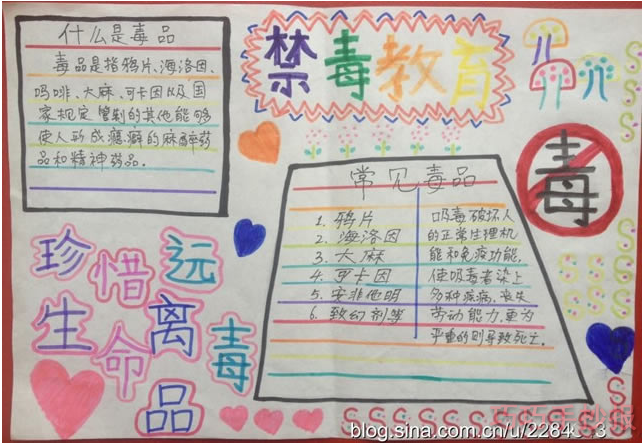 什么是毒品
毒品是指鸦片、海洛因、
吗啡、大麻、可卡因以及国
家规定管制的其他能够
使人形成瘾癖的麻醉药
品和精神药品。
禁毒教育
毒
常见毒品
1. 鸦片
2. 海洛因
3. 大麻
4. 可卡因
5. 安非他明
6. 致幻剂等
吸毒破坏人
的正常生理机
能和免疫功能,
使吸毒者染上
多种疾病,丧失
劳动能力,更为
严重的则导致死亡。
珍惜
生命
远离毒品